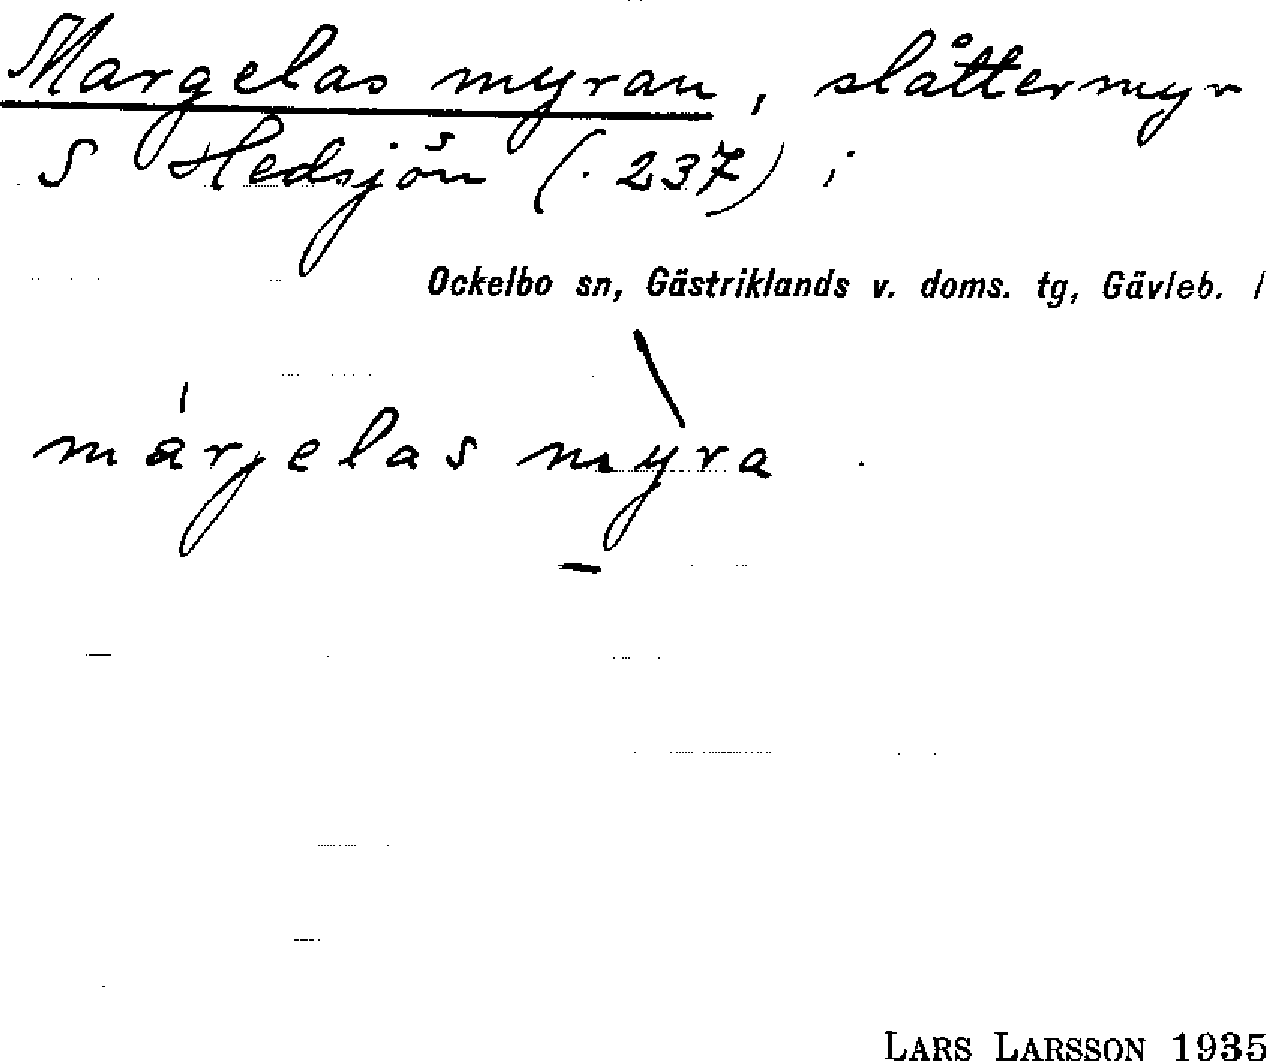 Margelas myran, slåttermyr
S Hedsjön (. 237) i
Ockelbo sn, Gästriklands v. doms. tg, Gävleb. l
márjelas mỳra
LARS LARSSON 1935